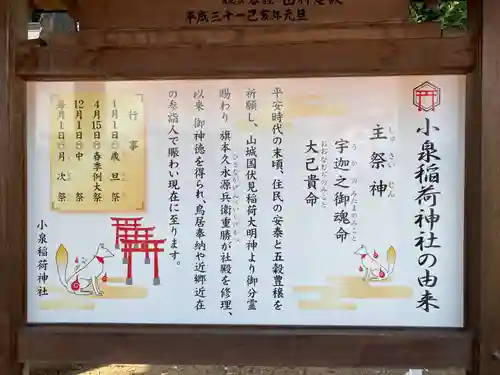 平成三十一己亥年元旦
小泉稲荷神社の由来
主祭神
しゅさいしん
宇迦之御魂命
うかのみたまのみこと
大己貴命
おおなむちのみこと
平安時代の末頃、住民の安泰と五穀豊穣を
祈願し、山城国伏見稲荷大明神より御分霊
賜わり 旗本久永源兵衛重勝が社殿を修理、
以来 御神徳を得られ、鳥居奉納や近郷近在
の参詣人で賑わい現在に至ります。
行事
1月1日 歳旦祭
4月15日 春季例大祭
12月1日 中祭
毎月1日 月次祭
小泉稲荷神社